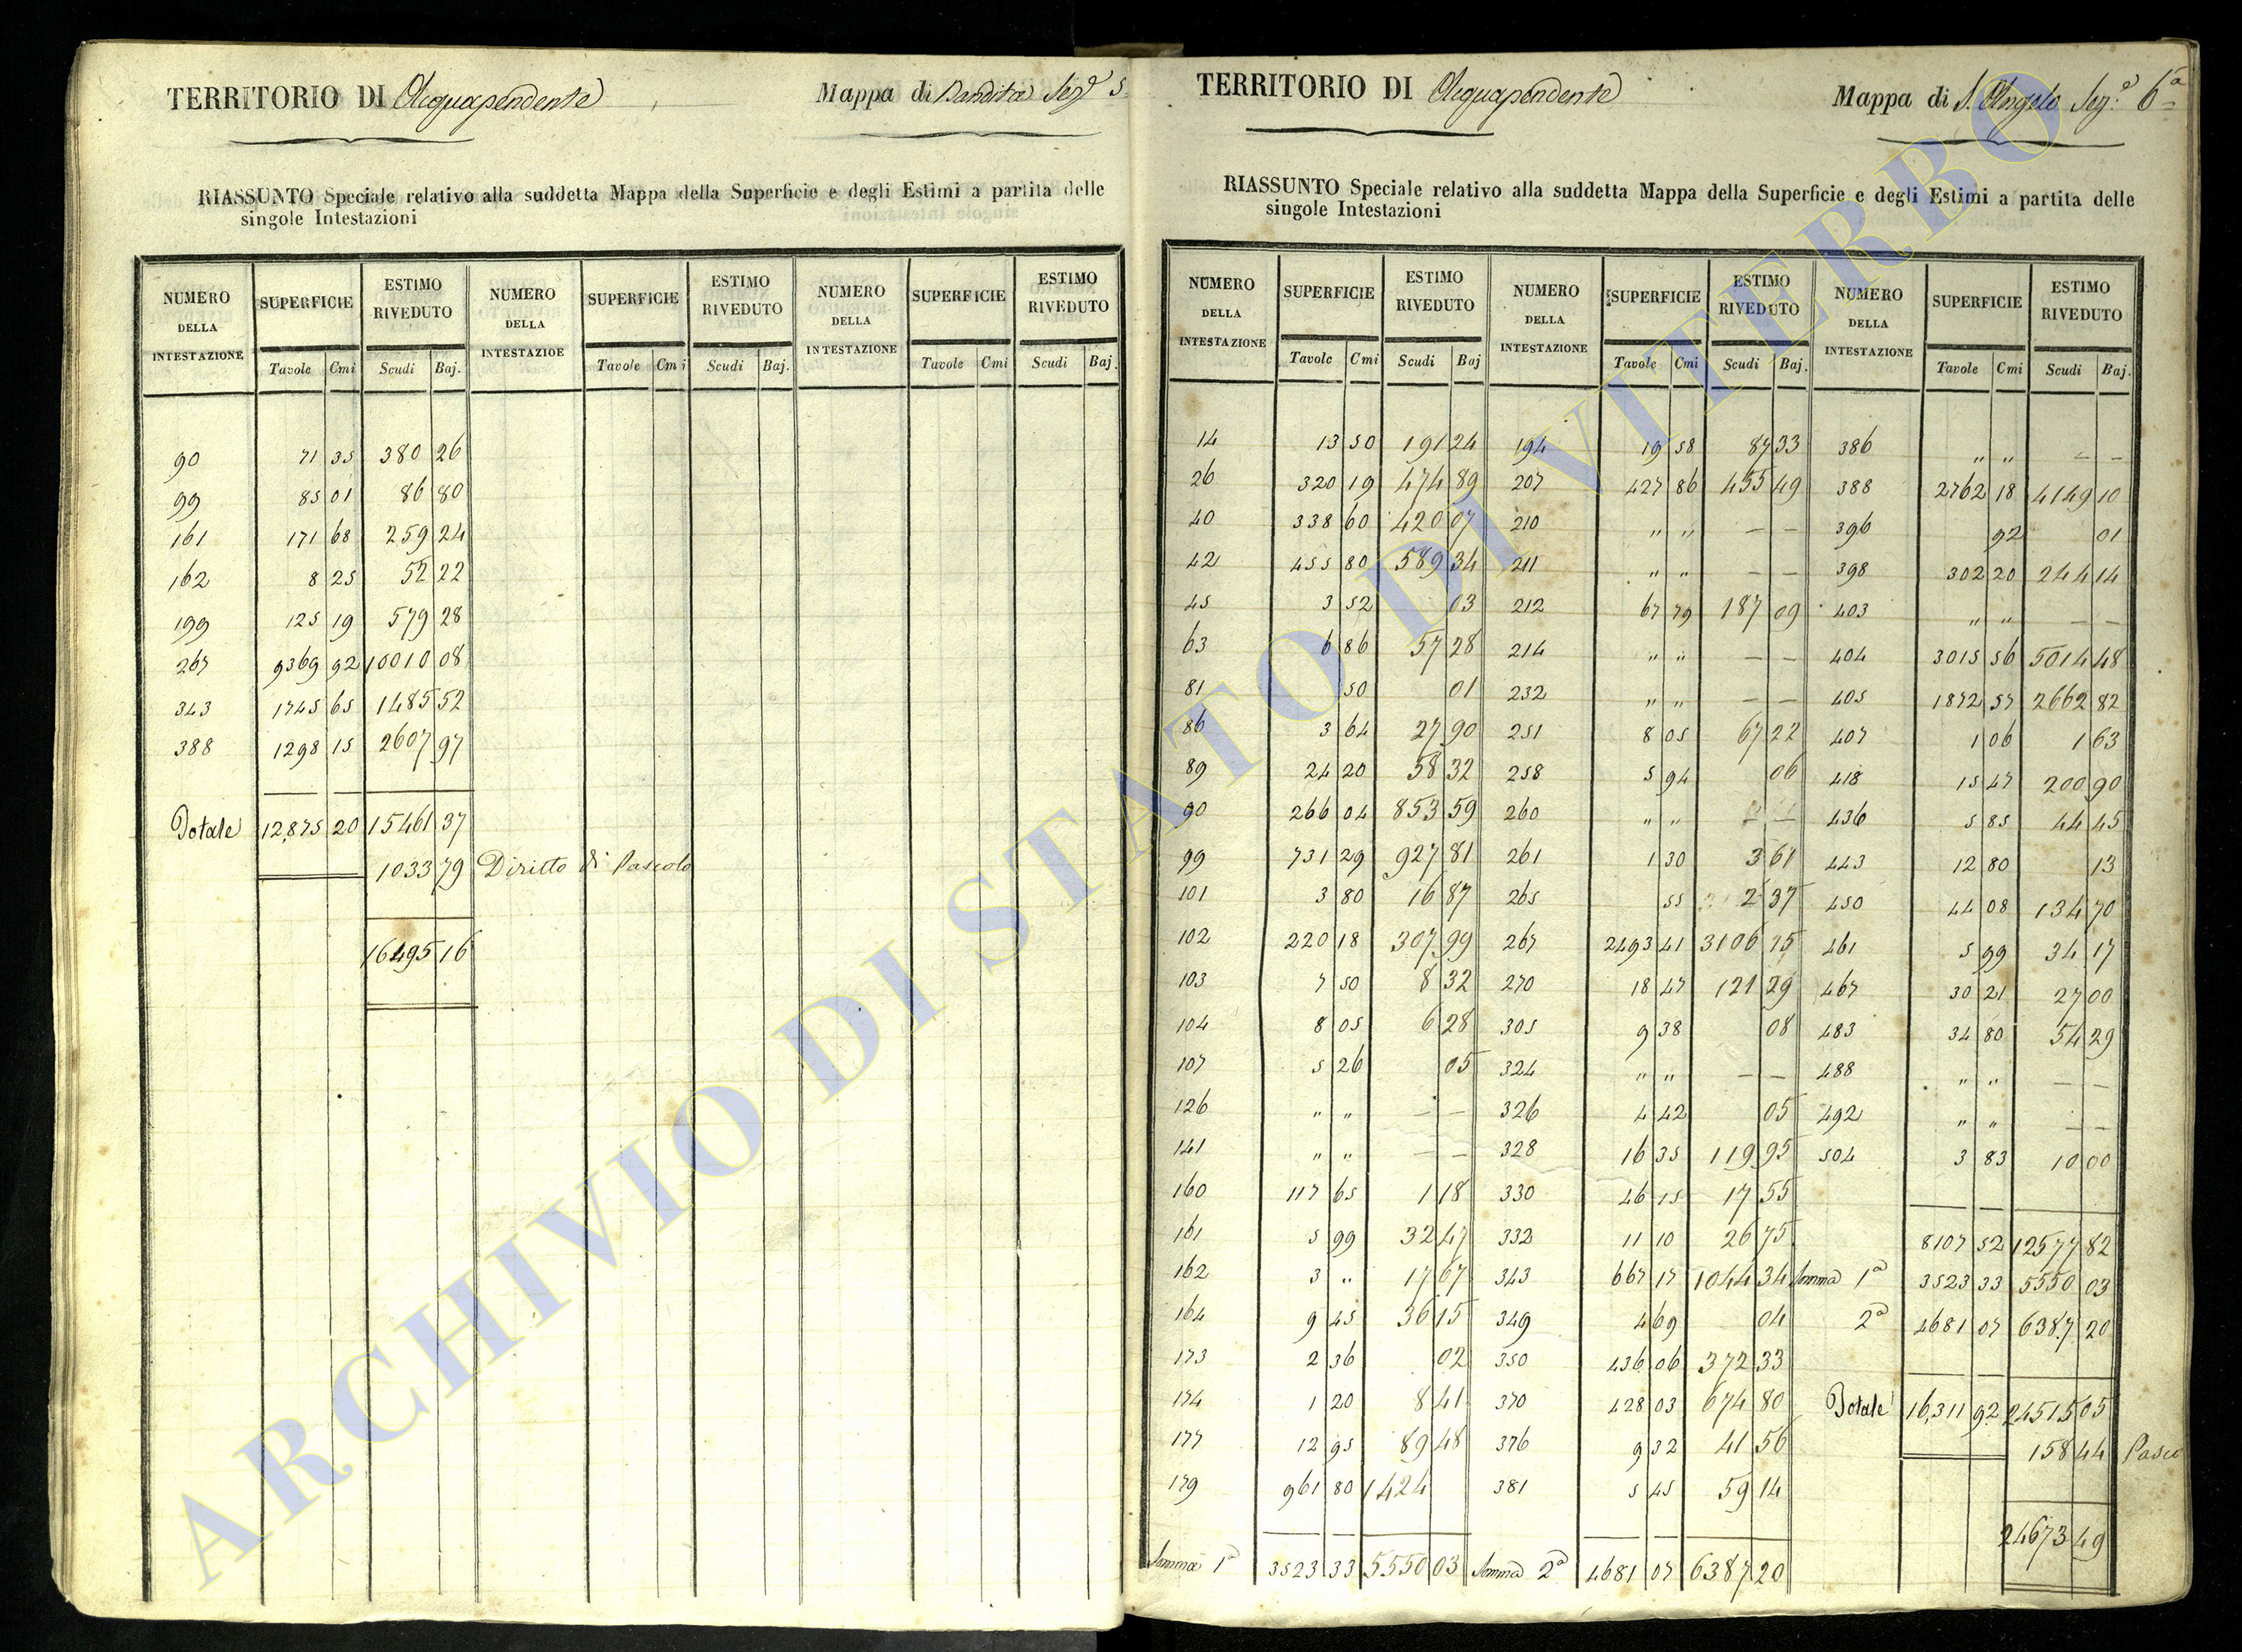 TERRITORIO DI Acquapendente Mappa di Bandita Sezᵉ 5
RIASSUNTO Speciale relativo alla suddetta Mappa della Superficie e degli Estimi a partita delle
singole Intestazioni
NUMERO DELLA INTESTAZIONE SUPERFICIE ESTIMO RIVEDUTO NUMERO DELLA INTESTAZIOE SUPERFICIE ESTIMO RIVEDUTO NUMERO DELLA INTESTAZIONE SUPERFICIE ESTIMO RIVEDUTO
Tavole Cmi Scudi Baj. Tavole Cmi Scudi Baj. Tavole Cmi Scudi Baj.
90 71 35 380 26
99 85 01 86 80
161 171 68 259 24
162 8 25 52 22
199 125 19 579 28
267 9369 92 10010 08
343 1745 65 1485 52
388 1298 15 2607 97
Totale 12,875 20 15461 37
1033 79 Diritto di Pascolo
16495 16
TERRITORIO DI Acquapendente Mappa di S. Angelo Sezᵉ 6ª
RIASSUNTO Speciale relativo alla suddetta Mappa della Superficie e degli Estimi a partita delle
singole Intestazioni
NUMERO DELLA INTESTAZIONE SUPERFICIE ESTIMO RIVEDUTO NUMERO DELLA INTESTAZIONE SUPERFICIE ESTIMO RIVEDUTO NUMERO DELLA INTESTAZIONE SUPERFICIE ESTIMO RIVEDUTO
Tavole Cmi Scudi Baj Tavole Cmi Scudi Baj. Tavole Cmi Scudi Baj.
14 13 50 191 24 194 19 58 87 33 386 " " — —
26 320 19 474 89 207 427 86 455 49 388 2762 18 4149 10
40 338 60 420 07 210 " " — — 396 92 01
42 455 80 589 34 211 " " — — 398 302 20 244 14
45 3 52 03 212 67 79 187 09 403 " " — —
63 6 86 57 28 214 " " — — 404 3015 56 5014 48
81 50 01 232 " " — — 405 1872 57 2662 82
86 3 64 27 90 251 8 05 67 22 407 1 06 1 63
89 24 20 58 32 258 5 94 06 418 15 47 200 90
90 266 04 853 59 260 " " — — 436 5 85 44 45
99 731 29 927 81 261 1 30 3 61 443 12 80 13
101 3 80 16 87 265 55 2 37 450 44 08 134 70
102 220 18 307 99 267 2493 41 3106 15 461 5 99 34 17
103 7 50 8 32 270 18 47 121 29 467 30 21 27 00
104 8 05 6 28 305 9 38 08 483 34 80 54 29
107 5 26 05 324 " " — — 488 " " — —
126 " " — — 326 4 42 05 492 " " — —
141 " " — — 328 16 35 119 95 504 3 83 10 00
160 117 65 1 18 330 46 15 17 55
161 5 99 32 47 332 11 10 26 75 8107 52 12577 82
162 3 " 17 67 343 667 17 1044 34 Somma 1ª 3523 33 5550 03
164 9 45 36 15 349 4 69 04 2ª 4681 07 6387 20
173 2 36 02 350 436 06 372 33
174 1 20 8 41 370 428 03 674 80 Totale 16,311 92 24515 05
177 12 95 89 48 376 9 32 41 56 158 44 Pasco
179 961 80 1424 381 5 45 59 14
24673 49
Somma 1ª 3523 33 5550 03 Somma 2ª 4681 07 6387 20
ARCHIVIO DI STATO DI VITERBO